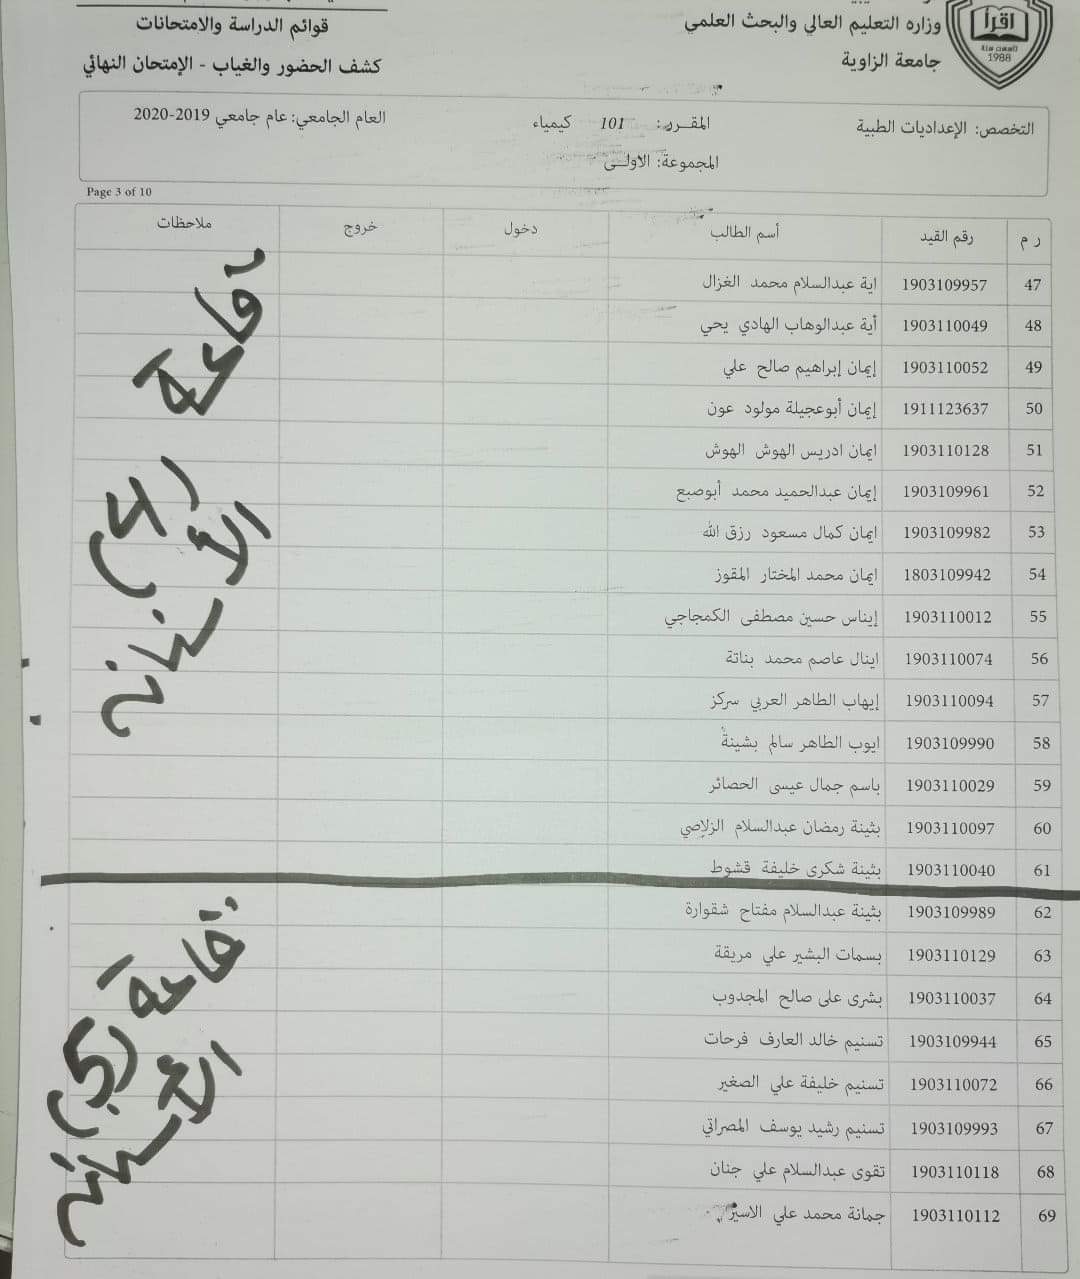 وزاره التعليم العالي والبحث العلمي
جامعة الزاوية
اقرأ
1988
قوائم الدراسة والامتحانات
كشف الحضور والغياب - الإمتحان النهائي
التخصص: الإعداديات الطبية
المقـرر: 101 كيمياء
العام الجامعي: عام جامعي 2019-2020
المجموعة: الاولى
Page 3 of 10
ر م رقم القيد أسم الطالب دخول خروج ملاحظات
47 1903109957 اية عبدالسلام محمد الغزال
48 1903110049 أية عبدالوهاب الهادي يحي
49 1903110052 إيمان إبراهيم صالح علي
50 1911123637 إيمان أبوعجيلة مولود عون
51 1903110128 ايمان ادريس الهوش الهوش
52 1903109961 إيمان عبدالحميد محمد أبوصبع
53 1903109982 ايمان كمال مسعود رزق الله
54 1803109942 ايمان محمد المختار المقوز
55 1903110012 إيناس حسين مصطفى الكمجاجي
56 1903110074 اينال عاصم محمد بناتة
57 1903110094 إيهاب الطاهر العربي سركز
58 1903109990 ايوب الطاهر سالم بشينة
59 1903110029 باسم جمال عيسى الحصائر
60 1903110097 بثينة رمضان عبدالسلام الزلاصي
61 1903110040 بثينة شكرى خليفة قشوط
قاعة (4)
الأسنان
62 1903109989 بثينة عبدالسلام مفتاح شقوارة
63 1903110129 بسمات البشير علي مريقة
64 1903110037 بشرى على صالح المجدوب
65 1903109944 تسنيم خالد العارف فرحات
66 1903110072 تسنيم خليفة علي الصغير
67 1903109993 تسنيم رشيد يوسف المصراتي
68 1903110118 تقوى عبدالسلام علي جنان
69 1903110112 جمانة محمد علي الاسير
قاعة (5)
الأسنان